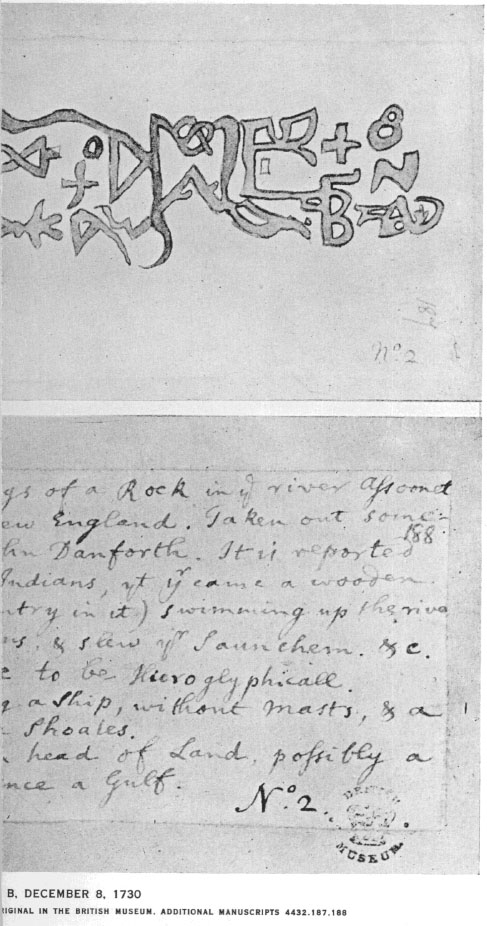 187
Nº 2
gs of a Rock in yᵉ river Assonet
ew England. Taken out some-
188
hn Danforth. It is reported
Indians, yᵗ yʳ came a wooden
ntry in it) swimming up the rive
ns, & slew yʳ Saunchem. &c.
e to be Hieroglyphicall.
g a Ship, without masts, & a
Shoales.
head of Land, possibly a
nce a Gulf.
Nº. 2.
BRITISH
MUSEUM
B, DECEMBER 8, 1730
RIGINAL IN THE BRITISH MUSEUM, ADDITIONAL MANUSCRIPTS 4432.187.188